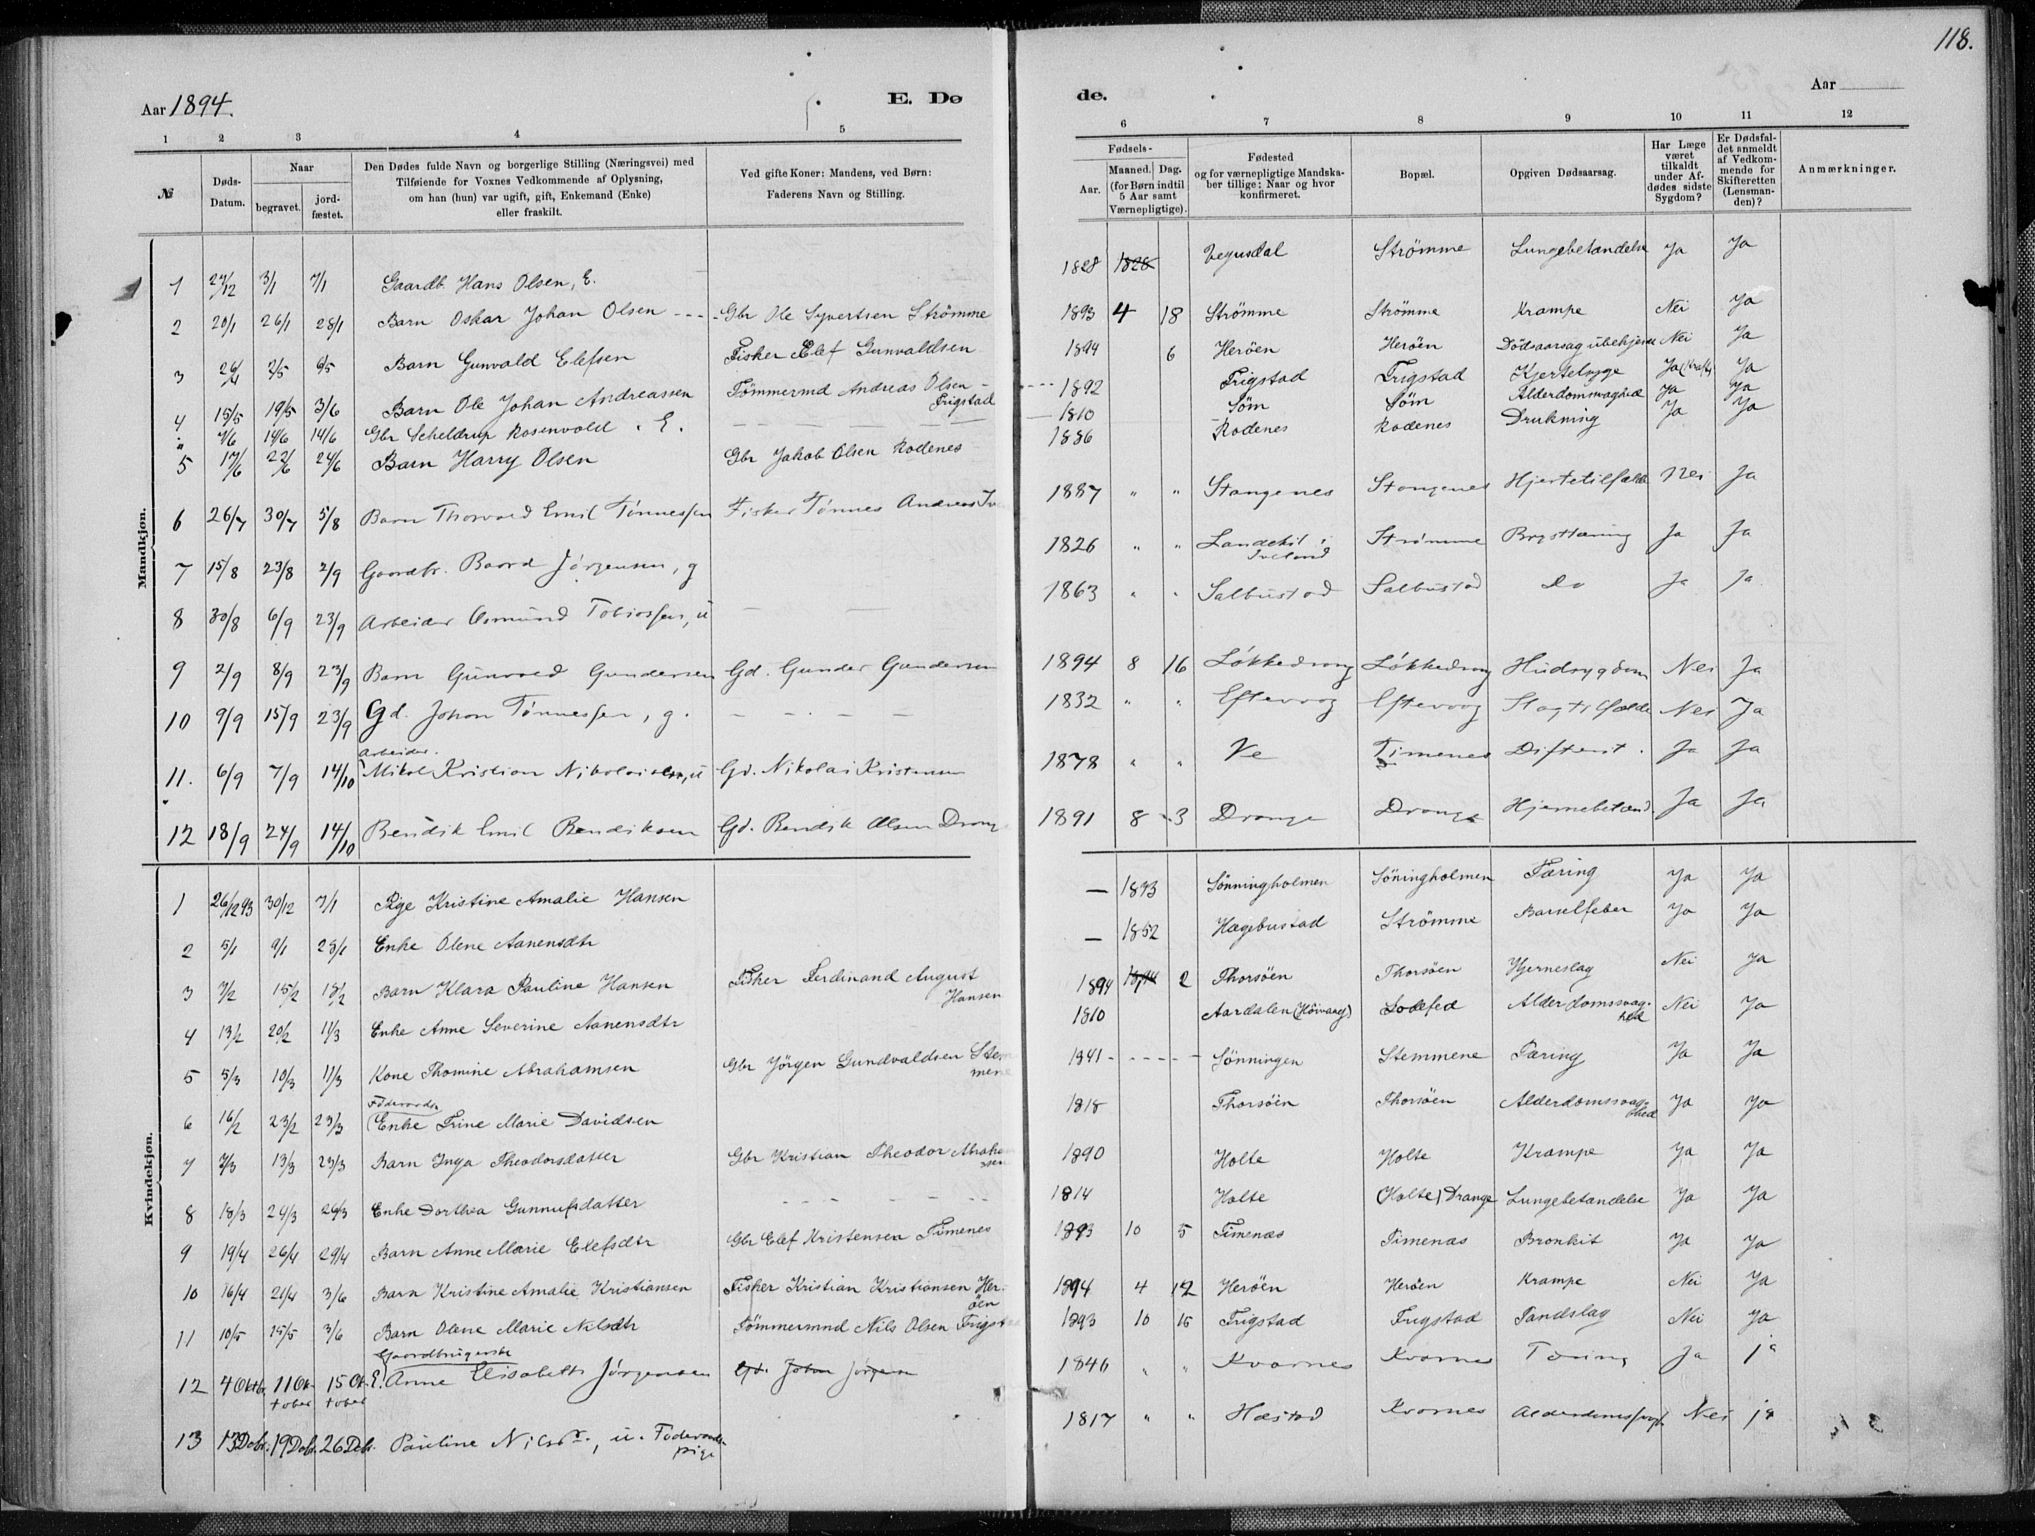 118.
Aar 1894.
E. Dø
de.
Aar
1 2 3 4 5 6 7 8 9 10 11 12
№
Døds-Datum.
Naar
begravet.
jord-fæstet.
Den Dødes fulde Navn og borgerlige Stilling (Næringsvei) med
Tilføiende for Voxnes Vedkommende af Oplysning,
om han (hun) var ugift, gift, Enkemand (Enke)
eller fraskilt.
Ved gifte Koner: Mandens, ved Børn:
Faderens Navn og Stilling.
Fødsels-
Aar.
Maaned. Dag.
(for Børn indtil
5 Aar samt
Værnepligtige).
Fødested
og for værnepligtige Mandska-
ber tillige: Naar og hvor
konfirmeret.
Bopæl.
Opgiven Dødsaarsag.
Har Læge
været
tilkaldt
under Af-
dødes sidste
Sygdom?
Er Dødsfal-
det anmeldt
af Vedkom-
mende for
Skifteretten
(Lensman-
den)?
Anmærkninger.
Mandkjøn.
1 27/12 3/1 7/1 Gaardb. Hans Olsen, E. 1828 1828 Vegusdal Strømme Lungebetændelse Ja Ja
2 20/1 26/1 28/1 Barn Oskar Johan Olsen Gbr Ole Syvertsen Strømme 1893 4 18 Strømme Strømme Krampe Nei Ja
3 26/4 2/5 6/5 Barn Gunvald Elefsen Fisker Elef Gunvaldsen 1894 6 Herøen Herøen Dødsaarsag ubekjendt Nei Ja
4 15/5 19/5 3/6 Barn Ole Johan Andreassen Tømmermd Andreas Olsen Frigstad 1892 Frigstad Frigstad Ja Ja
7/6 14/6 14/6 Gbr Scheldrup Rosenvold. E. 1810 Søm Søm Alderdomsvaghed Ja Ja
5 17/6 22/6 24/6 Barn Harry Olsen Gbr Jakob Olsen Rodenes 1886 Rodenes Rodenes Drukning Ja Ja
6 26/7 30/7 5/8 Barn Thorvald Emil Tønnessen Fisker Tønnes Andreas 1887 " " Stangenes Stangenes Hjertetilfælde Nei Ja
7 15/8 23/8 2/9 Gaardbr. Baard Jørgensen, g 1826 " " Landekil i Iveland Strømme Brysttæring Ja Ja
8 30/8 6/9 23/9 Arbeider Osmund Tobiassen, u 1863 " " Salbustad Salbustad Do Ja Ja
9 2/9 8/9 23/9 Barn Gunvald Gundersen Gd. Gunder Gundersen 1894 8 16 Løkkedrang Løkkedrang Hudsygdom Nei Ja
10 9/9 15/9 23/9 Gd. Johan Tønnessen, g. 1832 " " Eftevaag Eftevaag Slagtilfælde Nei Ja
11. 6/9 7/9 14/10 Arbeider. Mikal Kristian Nikolaisen, u Gd. Nikolai Kristensen 1878 " " Ve Timenes Difterit. Ja Ja
12 18/9 24/9 14/10 Bendik Emil Bendiksen Gd. Bendik Olsen Drange 1891 8 3 Drange Drange Hjernebetænd. Ja Ja
Kvindekjøn.
1 26/12 93 30/12 7/1 Pige Kristine Amalie Hansen 1873 Sønningholmen Søningholmen Tæring Ja Ja
2 5/1 9/1 28/1 Enke Olene Aanensdtr 1852 Hægebustad Strømme Barselfeber Ja Ja
3 7/2 15/2 18/2 Barn Klara Pauline Hansen Fisker Ferdinand August Hansen 1894 2 Thorsøen Thorsøen Hjerneslag Nei Ja
4 13/2 20/2 11/3 Enke Anne Severine Aanensdtr 1810 Aardalen (Høivaag) Lodefed Alderdomssvaghed Nei Ja
5 5/3 10/3 11/3 Kone Thomine Abrahamsen Gbr Jørgen Gundvaldsen Stemmene 1841 Sønningen Stemmene Tæring Ja Ja
6 16/2 23/2 23/3 Føderaads Enke Trine Marie Davidsen 1818 Thorsøen Thorsøen Alderdomssvaghed Ja Ja
7 7/3 13/3 23/3 Barn Inga Theodorsdatter Gbr Kristian Theodor Abrahamsen 1890 Holte Holte Krampe Ja Ja
8 18/3 24/3 26/3 Enke Dorthea Gunnufsdatter 1814 Holte (Holte) Drange Lungebetændelse Ja Ja
9 19/4 26/4 29/4 Barn Anne Marie Elefsdtr Gbr Elef Kristensen Timenes 1893 10 5 Timenæs Timenæs Bronkit Ja Ja
10 16/4 21/4 3/6 Barn Kristine Amalie Kristiansen Fisker Kristian Kristiansen Herøen 1894 4 12 Herøen Herøen Krampe Nei Ja
11 10/5 15/5 3/6 Barn Olene Marie Nilsdtr Tømmermnd Nils Olsen Frigstad 1893 10 15 Frigstad Frigstad Tandslag Nei Ja
12 4 Oktb. 11 Oktober 15 Oktober Gaardbrugerske E. Anne Elisabeth Jørgensen Gd. John Jørgen 1846 " " Kvarnes Kvarnes Tæring Ja ja
13 13 Decbr. 19 Decbr. 26 Decbr. Pauline Nilsdr., u. Føderaads pige 1817 " " Hæstad Kvarnes Nei ja